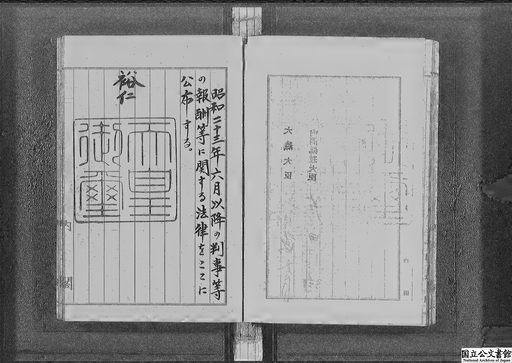 昭和二十三年六月以降の判事等
の報酬等に関する法律をここに
公布する。
裕仁
天皇
御璽
内閣
大蔵大臣
内閣総理大臣
内閣
国立公文書館
National Archives of Japan